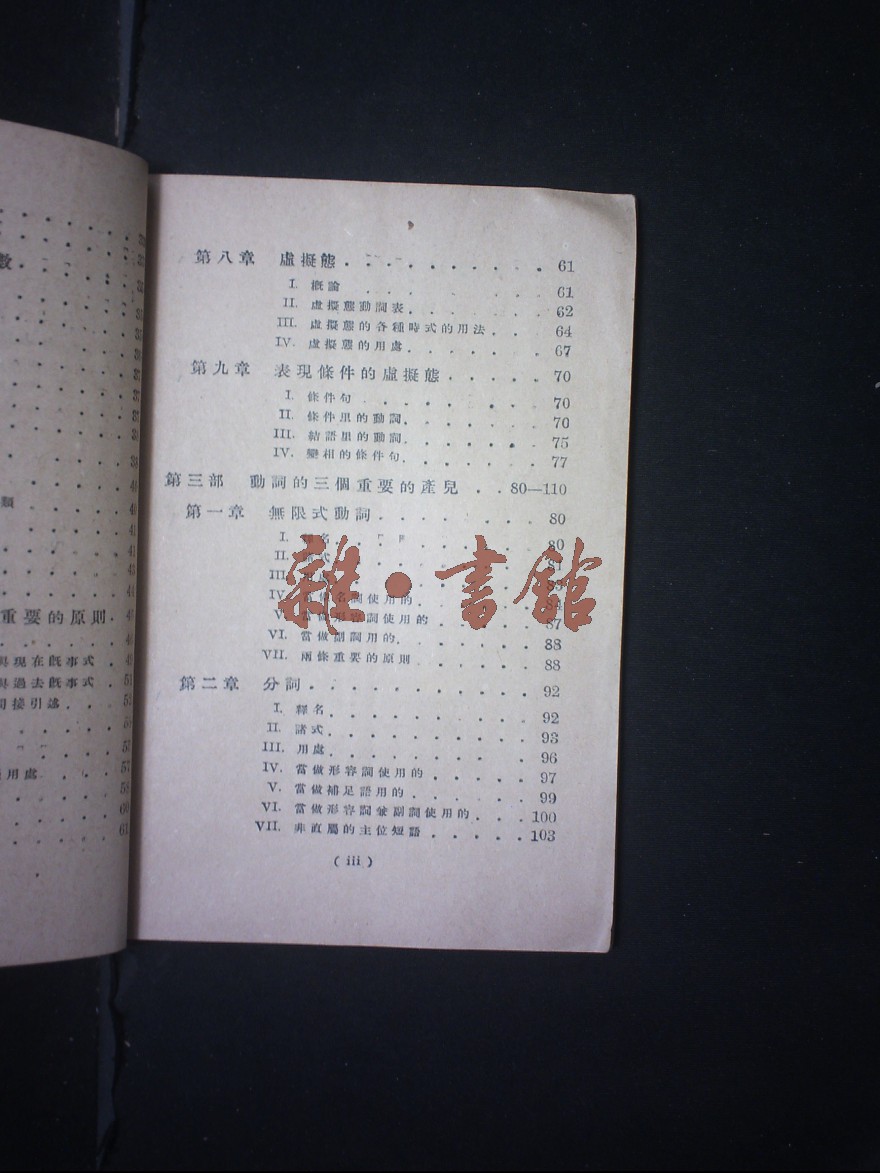 數
類
重要的原則
與現在既事式
與過去既事式
間接引述
用處
第八章 虛擬態 61
I. 概論 61
II. 虛擬態動詞表 62
III. 虛擬態的各種時式的用法 64
IV. 虛擬態的用處 67
第九章 表現條件的虛擬態 70
I. 條件句 70
II. 條件里的動詞 70
III. 結語里的動詞 75
IV. 變相的條件句 77
第三部 動詞的三個重要的產兒 80—110
第一章 無限式動詞 80
I. 釋名 80
II. 式 81
III.
IV. 當做名詞使用的 84
V. 當做形容詞使用的 87
VI. 當做副詞用的 88
VII. 兩條重要的原則 88
第二章 分詞 92
I. 釋名 92
II. 諸式 93
III. 用處 96
IV. 當做形容詞使用的 97
V. 當做補足語用的 99
VI. 當做形容詞兼副詞使用的 100
VII. 非直屬的主位短語 103
( iii )
雜·書館